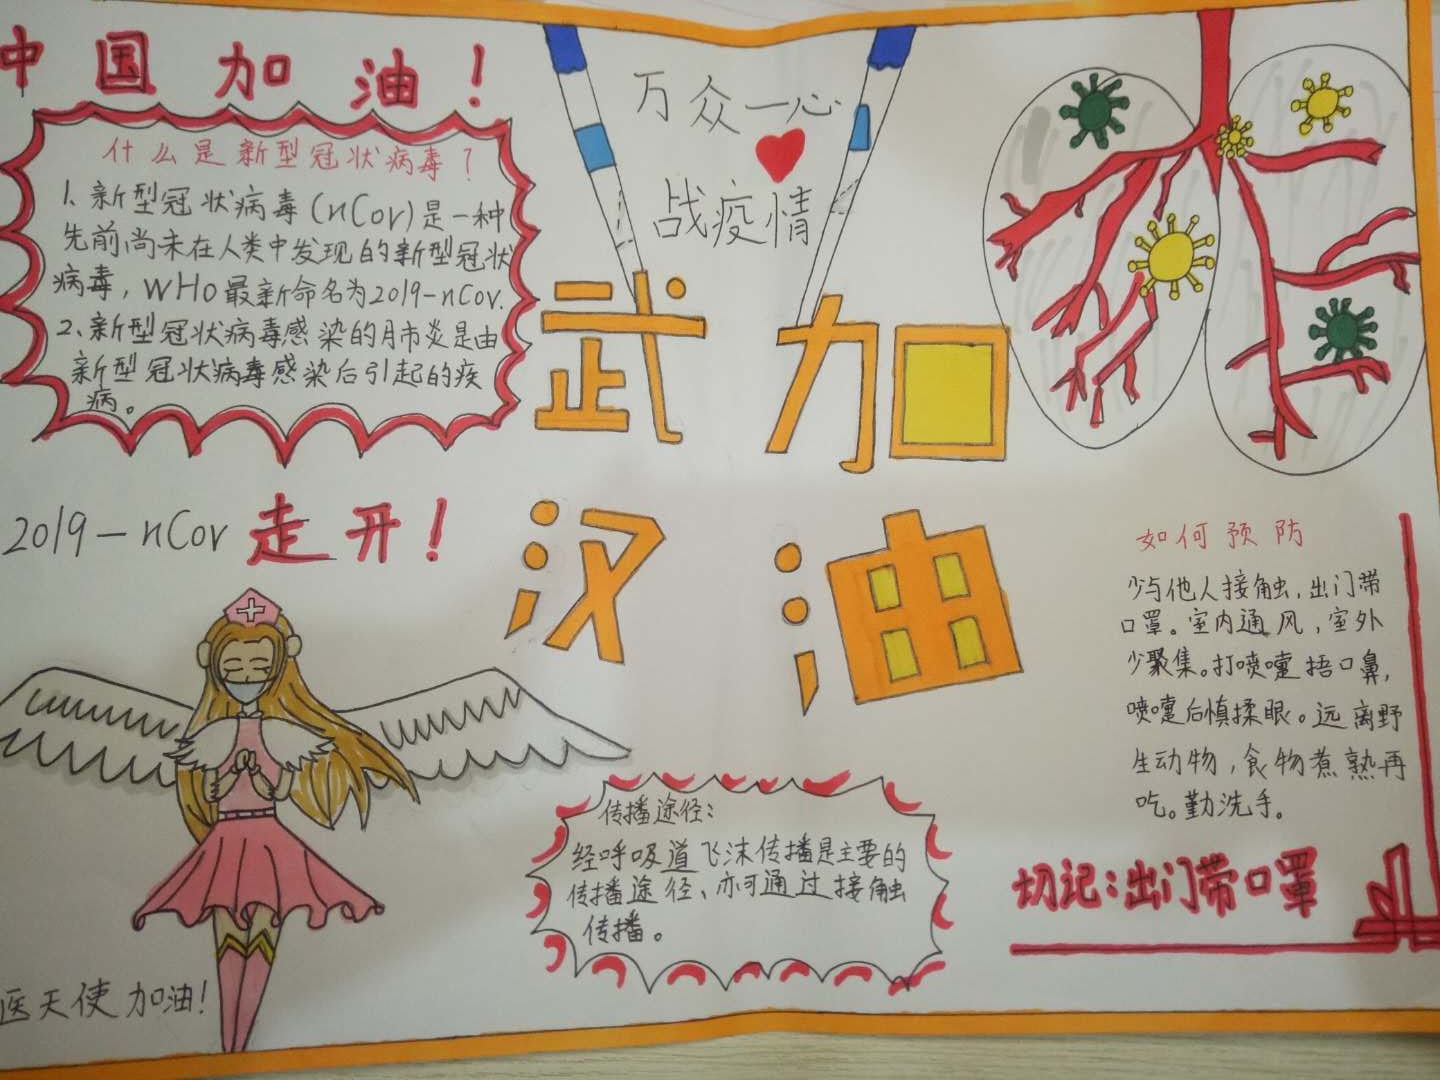 中国加油！
什么是新型冠状病毒？
1、新型冠状病毒(nCov)是一种
先前尚未在人类中发现的新型冠状
病毒，WHO最新命名为2019-nCov.
2、新型冠状病毒感染的肺炎是由
新型冠状病毒感染后引起的疾
病。
万众一心
战疫情
武
汉
加
油
2019-nCov 走开！
医天使加油！
传播途径：
经呼吸道飞沫传播是主要的
传播途径、亦可通过接触
传播。
如何预防
少与他人接触，出门带
口罩。室内通风，室外
少聚集。打喷嚏捂口鼻，
喷嚏后慎揉眼。远离野
生动物，食物煮熟再
吃。勤洗手。
切记：出门带口罩